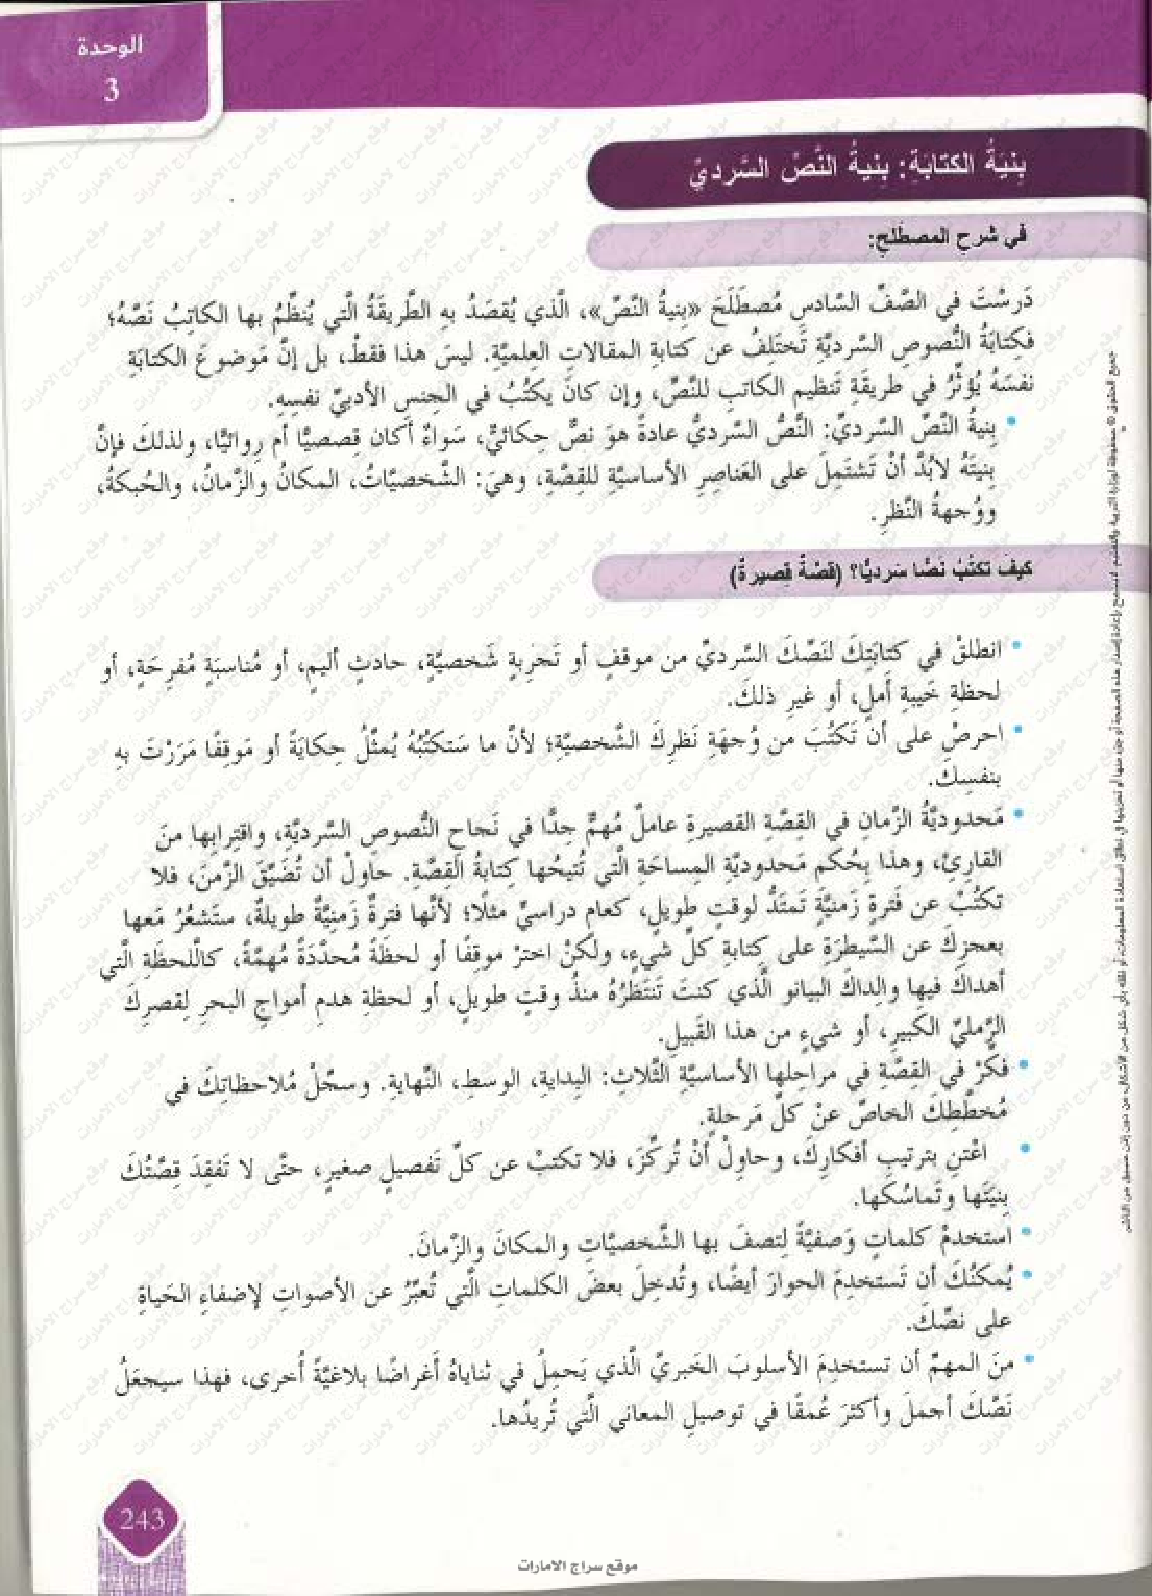 الوحدة
3
بِنيَةُ الكتابَةِ: بِنيةُ النَّصِّ السَّرديِّ
في شرحِ المصطَلحِ:
دَرسْتَ في الصَّفِّ السّادسِ مُصطَلَحَ «بِنيةُ النَّصِّ»، الَّذي يُقصَدُ بهِ الطَّريقَةُ الَّتي يُنظِّمُ بها الكاتِبُ نَصَّهُ؛
فكِتابَةُ النُّصوصِ السَّرديَّةِ تَختَلِفُ عن كتابةِ المقالاتِ العِلميَّةِ. ليسَ هذا فقطْ، بل إنَّ مَوضوعَ الكتابَةِ
نفسَهُ يُؤثِّرُ في طريقَةِ تَنظيمِ الكاتبِ للنَّصِّ، وإن كانَ يكتُبُ في الجِنسِ الأدبيِّ نفسِهِ.
• بِنيةُ النَّصِّ السَّرديِّ: النَّصُّ السَّرديُّ عادةً هوَ نصٌّ حِكائيٌّ، سَواءٌ أكان قِصصيًّا أم رِوائيًّا، ولذلكَ فإنَّ
بِنيتَهُ لابُدَّ أنْ تَشتَمِلَ على العَناصِرِ الأساسيَّةِ للقِصَّةِ، وهيَ: الشَّخصيّاتُ، المكانُ والزَّمانُ، والحُبكةُ،
ووُجهةُ النَّظرِ.
كيفَ تكتُبُ نَصًّا سَرديًّا؟ (قصَّةً قصيرةً)
• انطلقْ في كتابَتِكَ لنَصِّكَ السَّرديِّ من موقفٍ أو تَجربةٍ شَخصيَّةٍ، حادثٍ أليمٍ، أو مُناسبَةٍ مُفرِحَةٍ، أو
لحظةِ خَيبةِ أملٍ، أو غيرِ ذلكَ.
• احرصْ على أن تَكتُبَ من وُجهَةِ نَظرِكَ الشَّخصيَّةِ؛ لأنَّ ما سَتكتُبُهُ يُمثِّلُ حِكايَةً أو مَوقِفًا مَرَرْتَ بهِ
بنفسِكَ.
• مَحدوديَّةُ الزَّمانِ في القِصَّةِ القصيرةِ عاملٌ مُهمٌّ جدًّا في نَجاحِ النُّصوصِ السَّرديَّةِ، واقتِرابِها منَ
القارئِ، وهذا بِحُكمِ مَحدوديَّةِ المِساحَةِ الَّتي تُتيحُها كِتابةُ القِصَّةِ. حاوِلْ أن تُضَيِّقَ الزَّمنَ، فلا
تكتُبْ عن فَترةٍ زَمنيَّةٍ تَمتَدُّ لوقتٍ طويلٍ، كعامٍ دراسيٍّ مثلًا؛ لأنَّها فترةٌ زَمِنيَّةٌ طويلةٌ، ستَشعُرُ مَعها
بعجزِكَ عن السَّيطرَةِ على كِتابةِ كلِّ شيءٍ، ولكنْ اخترْ موقفًا أو لحظَةً مُحدَّدَةً مُهمَّةً، كاللَّحظَةِ الَّتي
أهداكَ فيها والِداكَ البيانو الَّذي كنتَ تَنتَظرُهُ منذُ وقتٍ طويلٍ، أو لحظةِ هدمِ أمواجِ البحرِ لِقصرِكَ
الرَّمليِّ الكبيرِ، أو شيءٍ من هذا القَبيلِ.
• فكِّرْ في القِصَّةِ في مراحِلها الأساسيَّةِ الثَّلاثِ: البدايةِ، الوسطِ، النِّهايةِ. وسجِّلْ مُلاحظاتِكَ في
مُخطَّطِكَ الخاصِّ عنْ كلِّ مَرحلةٍ.
• اعْتنِ بترتيبِ أفكارِكَ، وحاوِلْ أنْ تُركِّزَ، فلا تكتبْ عن كلِّ تَفصيلٍ صغيرٍ، حتَّى لا تَفقِدَ قِصَّتُكَ
بِنيَتَها وتَماسُكَها.
• استخدمْ كلماتٍ وَصفيَّةً لِتصفَ بها الشَّخصيّاتِ والمكانَ والزَّمانَ.
• يُمكنُكَ أن تَستخدِمَ الحوارَ أيضًا، وتُدخِلَ بعضَ الكلماتِ الَّتي تُعبِّرُ عن الأصواتِ لإضفاءِ الحَياةِ
على نصِّكَ.
• منَ المهمِّ أن تستخدِمَ الأسلوبَ الخَبريَّ الَّذي يَحمِلُ في ثناياهُ أغراضًا بلاغيَّةً أُخرى، فهذا سيجعَلُ
نَصَّكَ أجملَ وأكثرَ عُمقًا في توصيلِ المعاني الَّتي تُريدُها.
243
موقع سراج الامارات